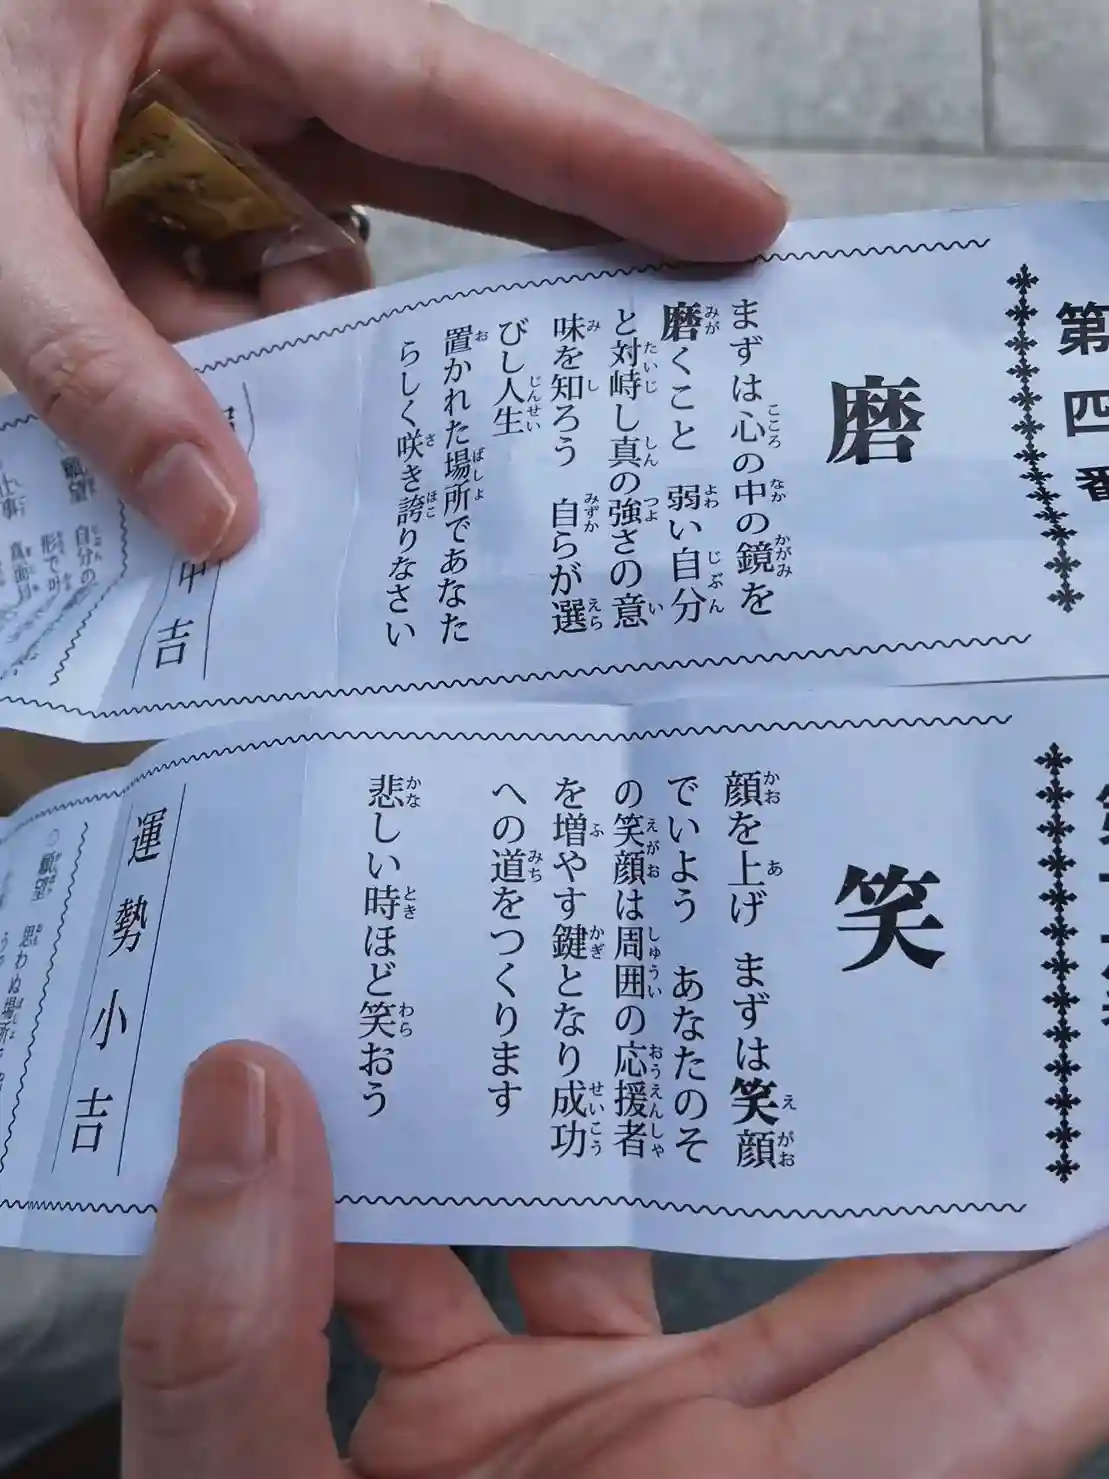 第四番
磨
まずは心の中の鏡を
磨くこと　弱い自分
と対峙し真の強さの意
味を知ろう　自らが選
びし人生
置かれた場所であなた
らしく咲き誇りなさい
中吉
願望
自分の
形で叶
真面目
笑
顔を上げ　まずは笑顔
でいよう　あなたのそ
の笑顔は周囲の応援者
を増やす鍵となり成功
への道をつくります
悲しい時ほど笑おう
運勢小吉
願望　思わぬ場所